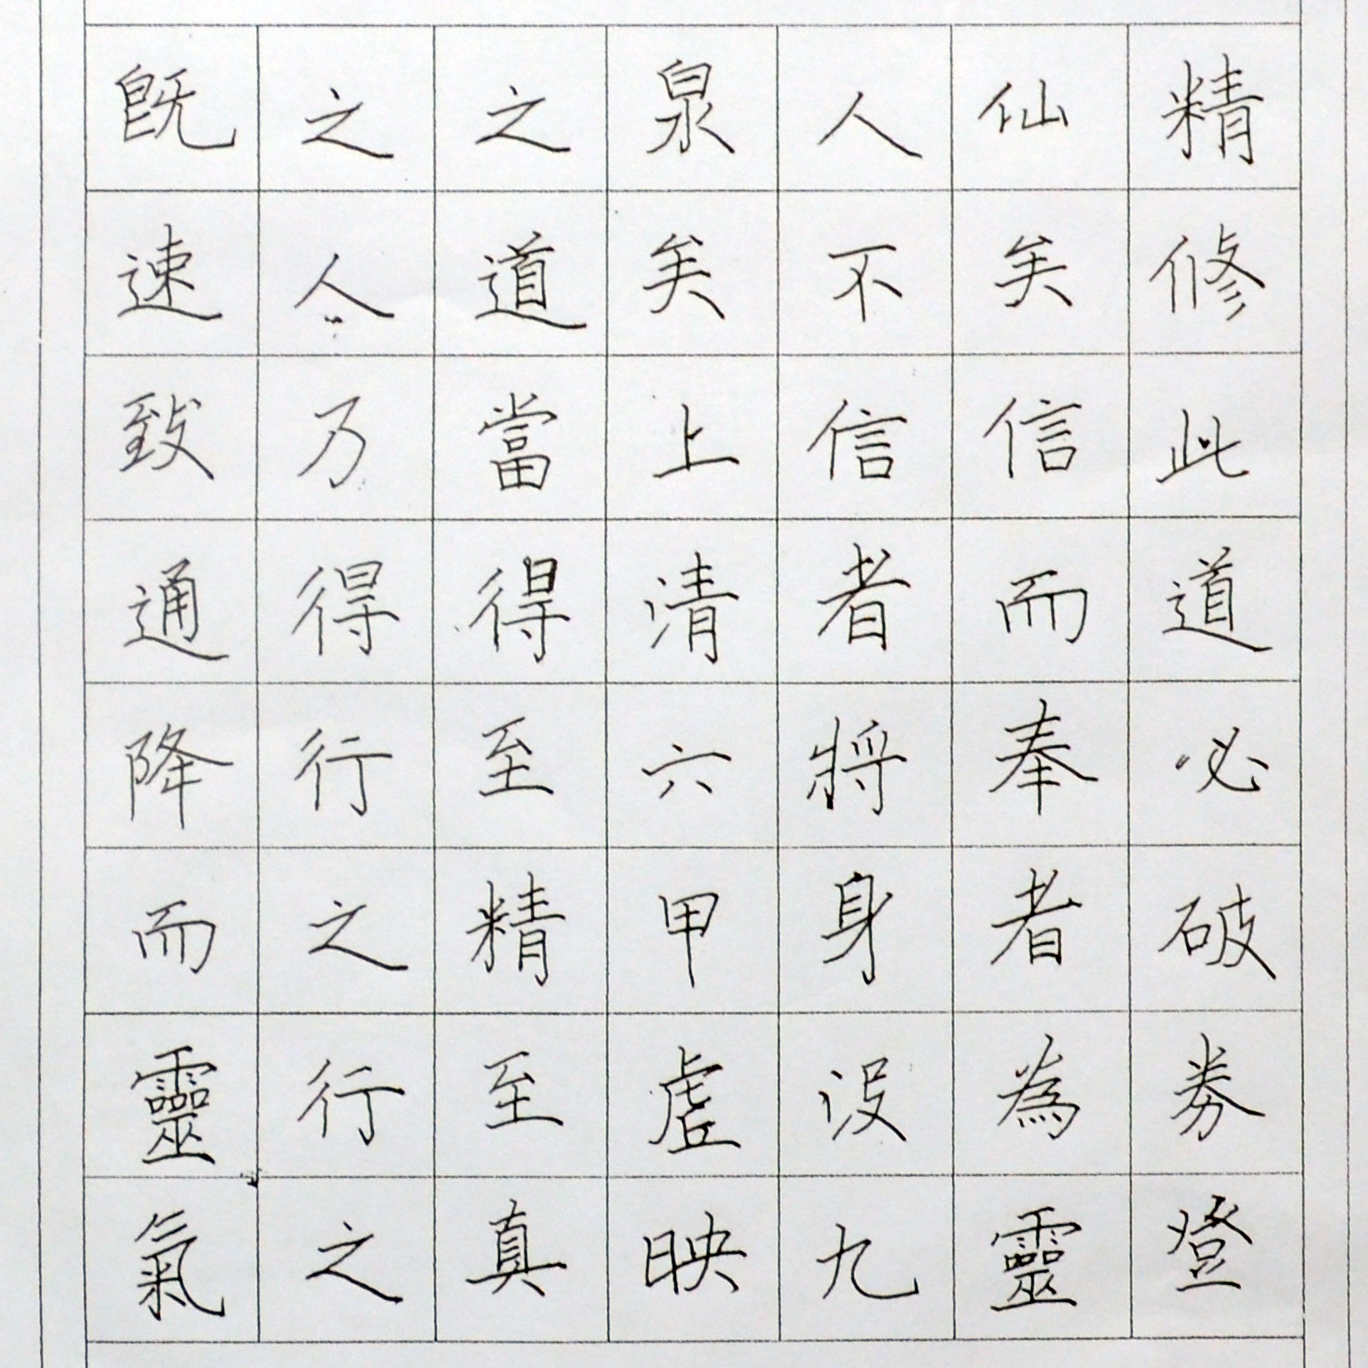 精修此道必破券登
仙矣信而奉者為靈
人不信者將身没九
泉矣上清六甲虛映
之道當得至精至真
之人乃得行之行之
既速致通降而靈氣